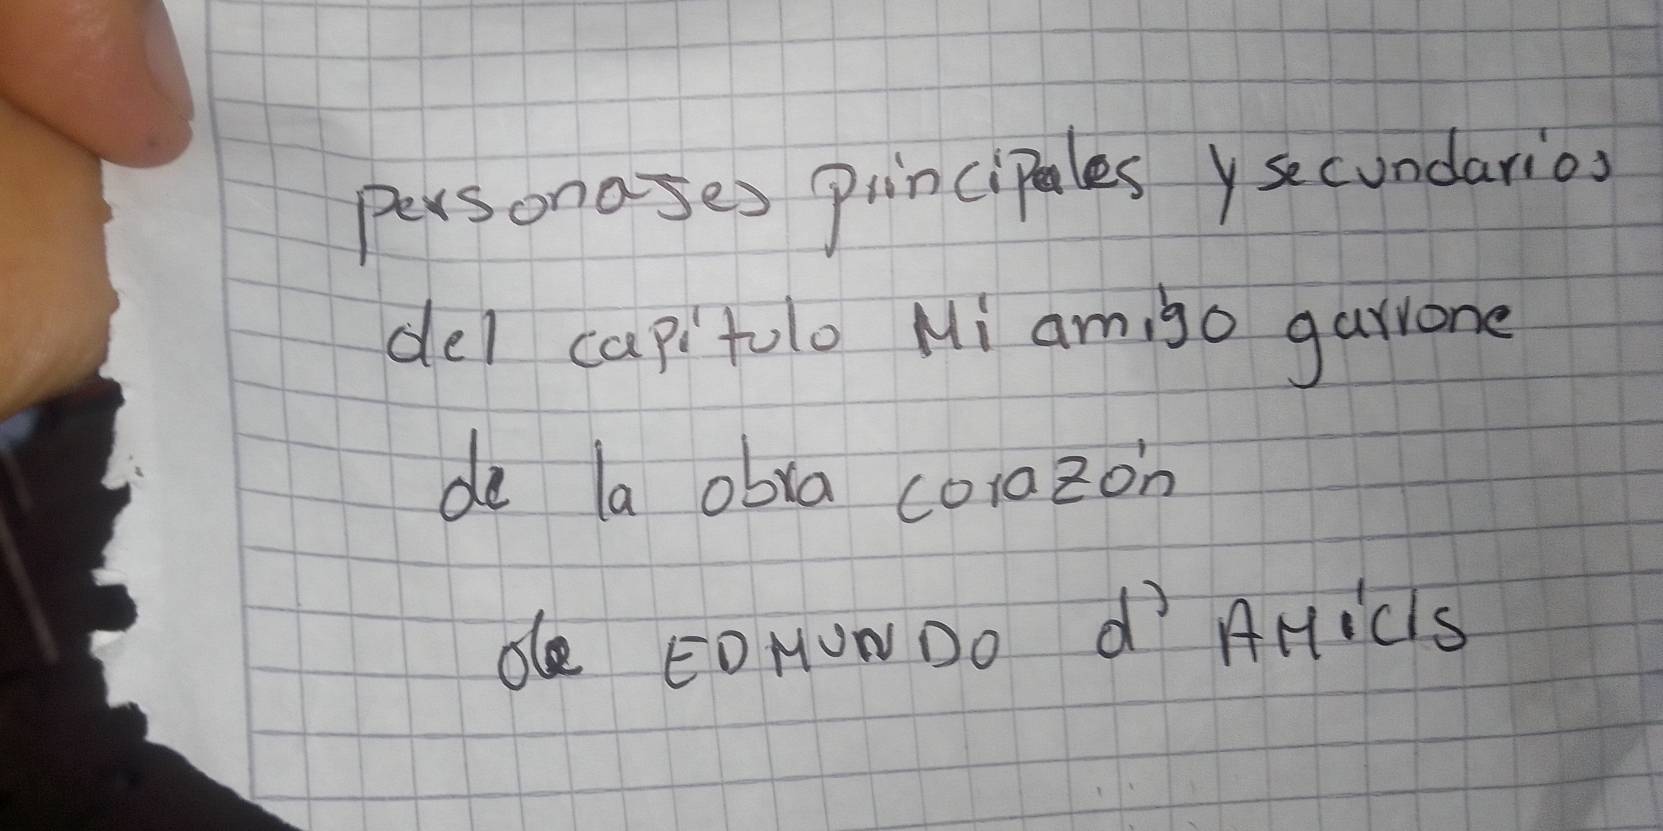 personajes principales y secundarios
del capitulo Mi amigo garrone
de la obra corazón
de EDMUNDO d' AMicis